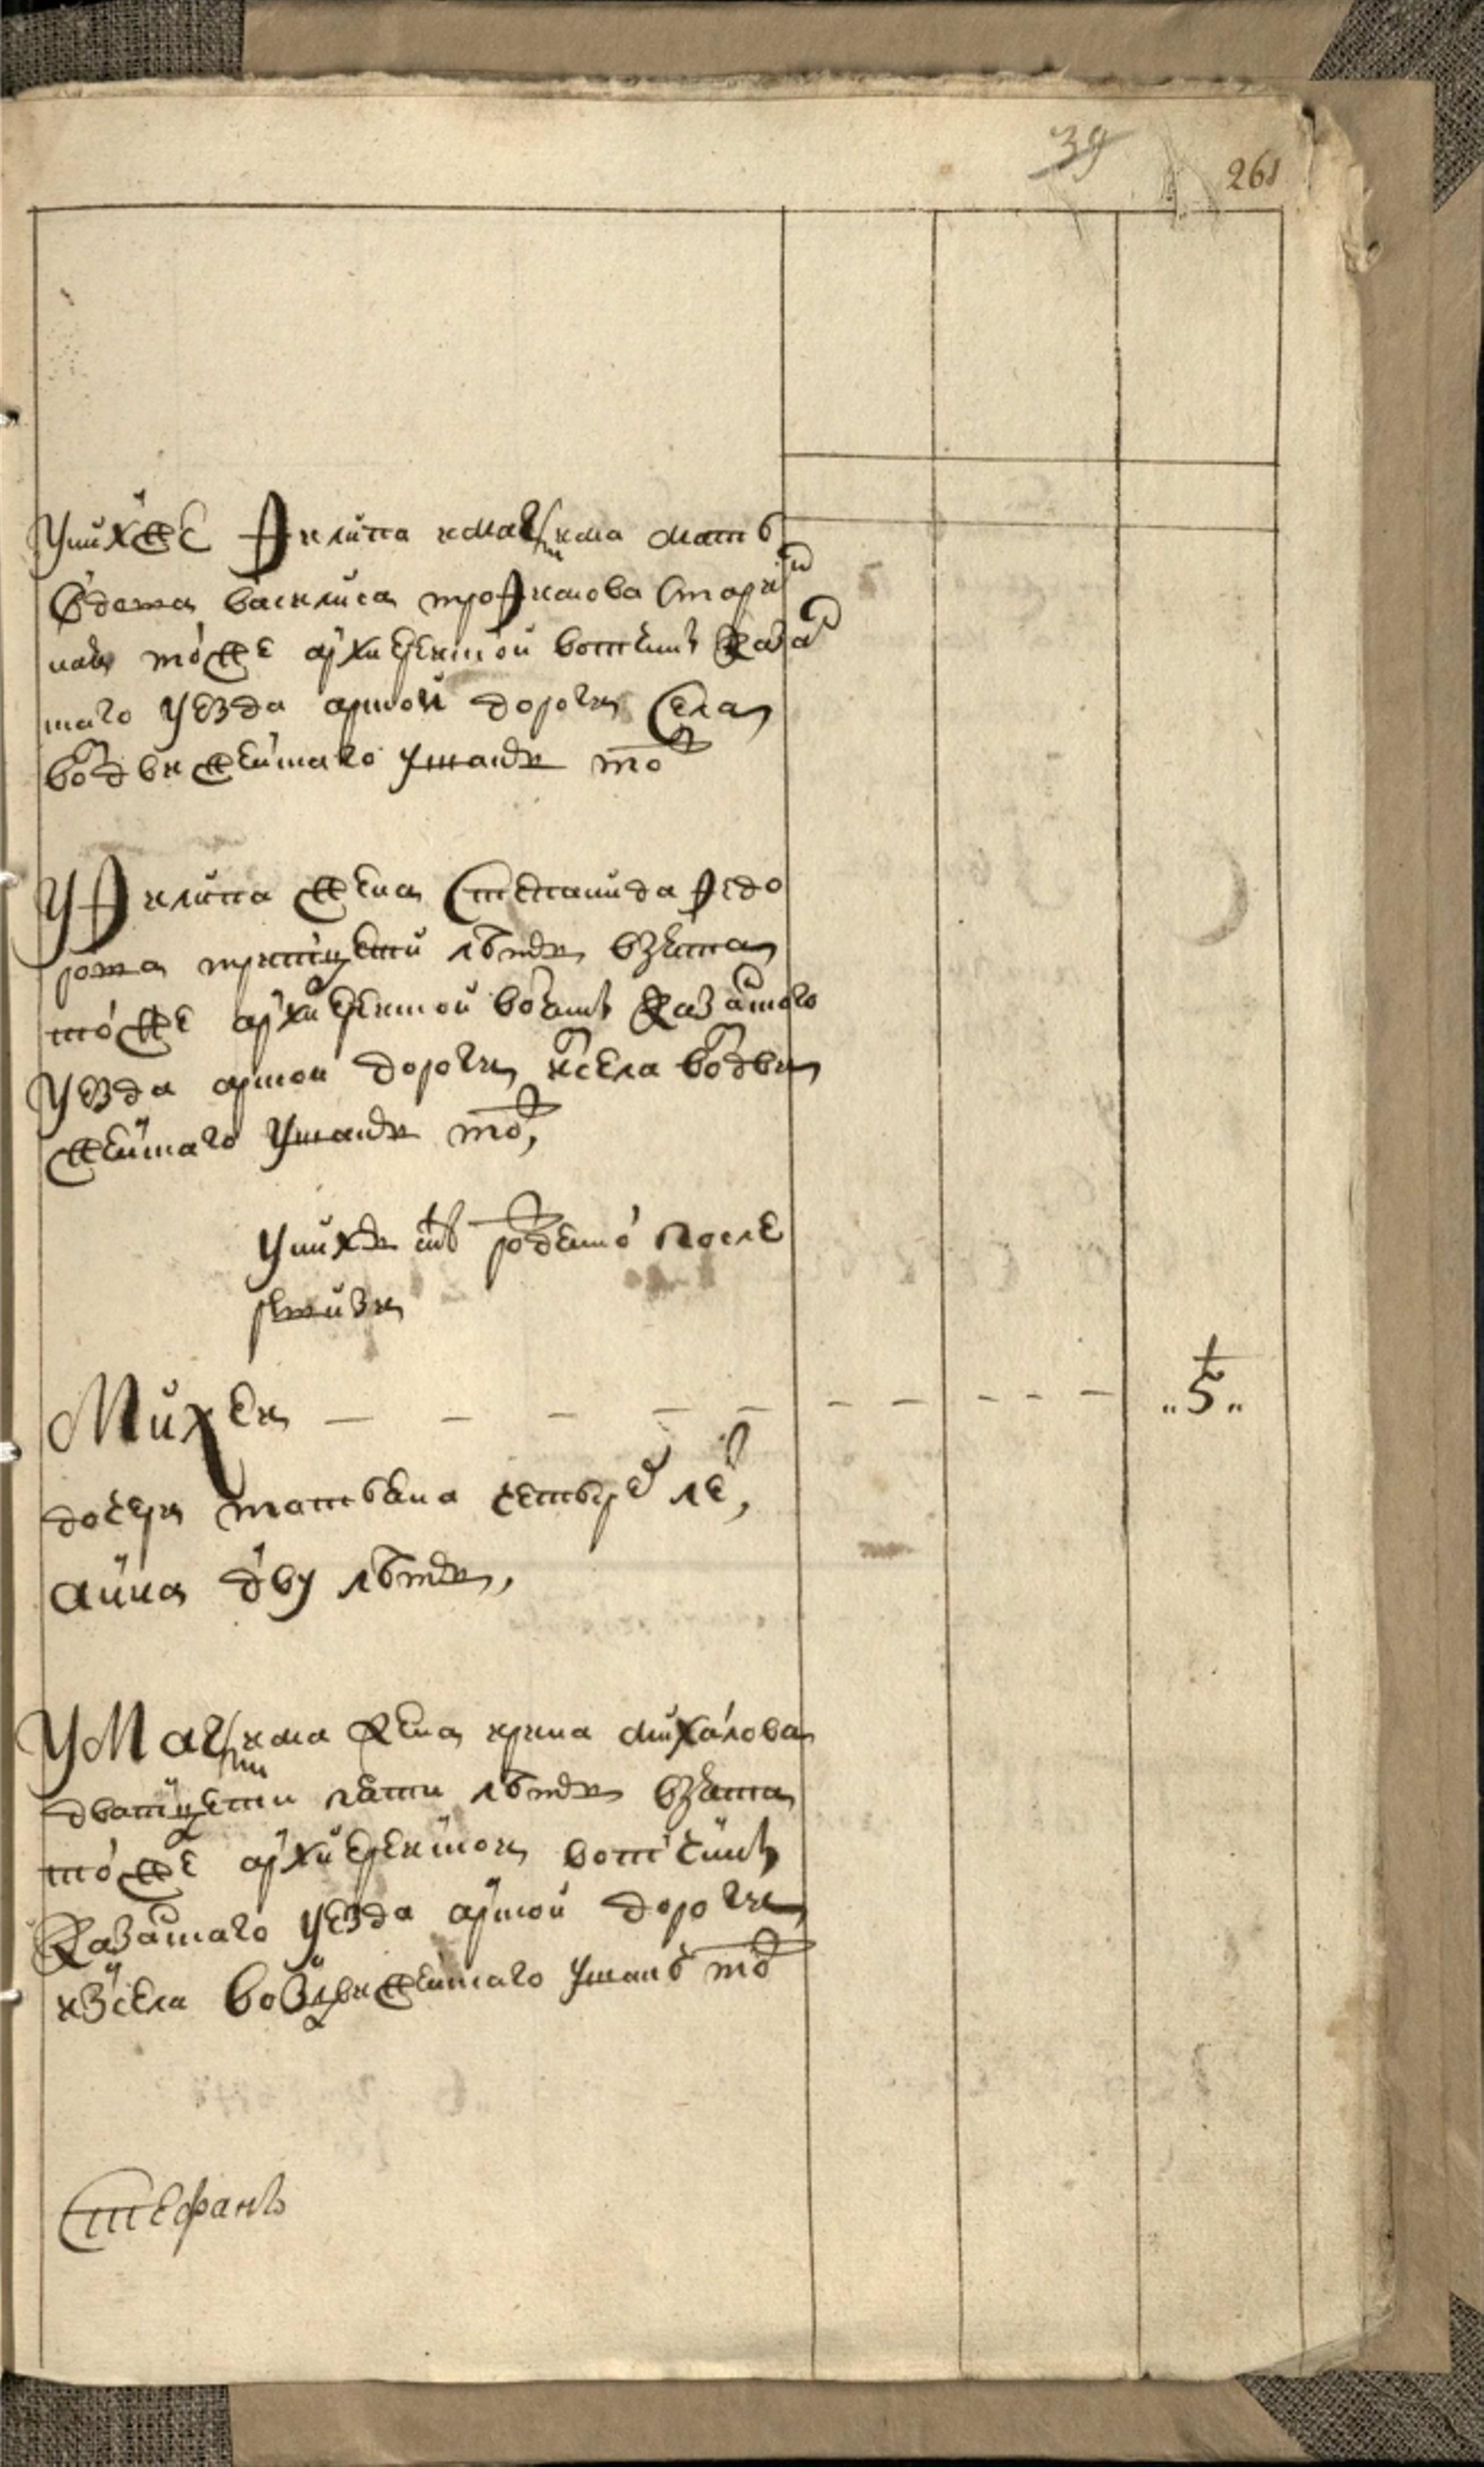 39 261
У нихже Филипа и Мазима мать
вдова василиса трофимова старин
ная тоеже архиерейской вотчины казан
скаго уезда арской дороги села
воздвиженскаго уроженка тож
У Филипа жена Степанида Федо
рова тритцети летъ взята
тоеже архиерейской вотчины казанского
уезда арской дороги ис села воздви
женскаго уроженка тож,
У нихъ дети рожденно после
ревизи
Михей — — — — — — — — — „5„
дочери татьяна четырех лет,
анна дву летъ,
У Мазима жена ирина михайлова
дватцети пяти летъ взята
тоеже архиерейской вотчины
казанскаго уезда арской дороги
из села воздвиженскаго
Стефанъ